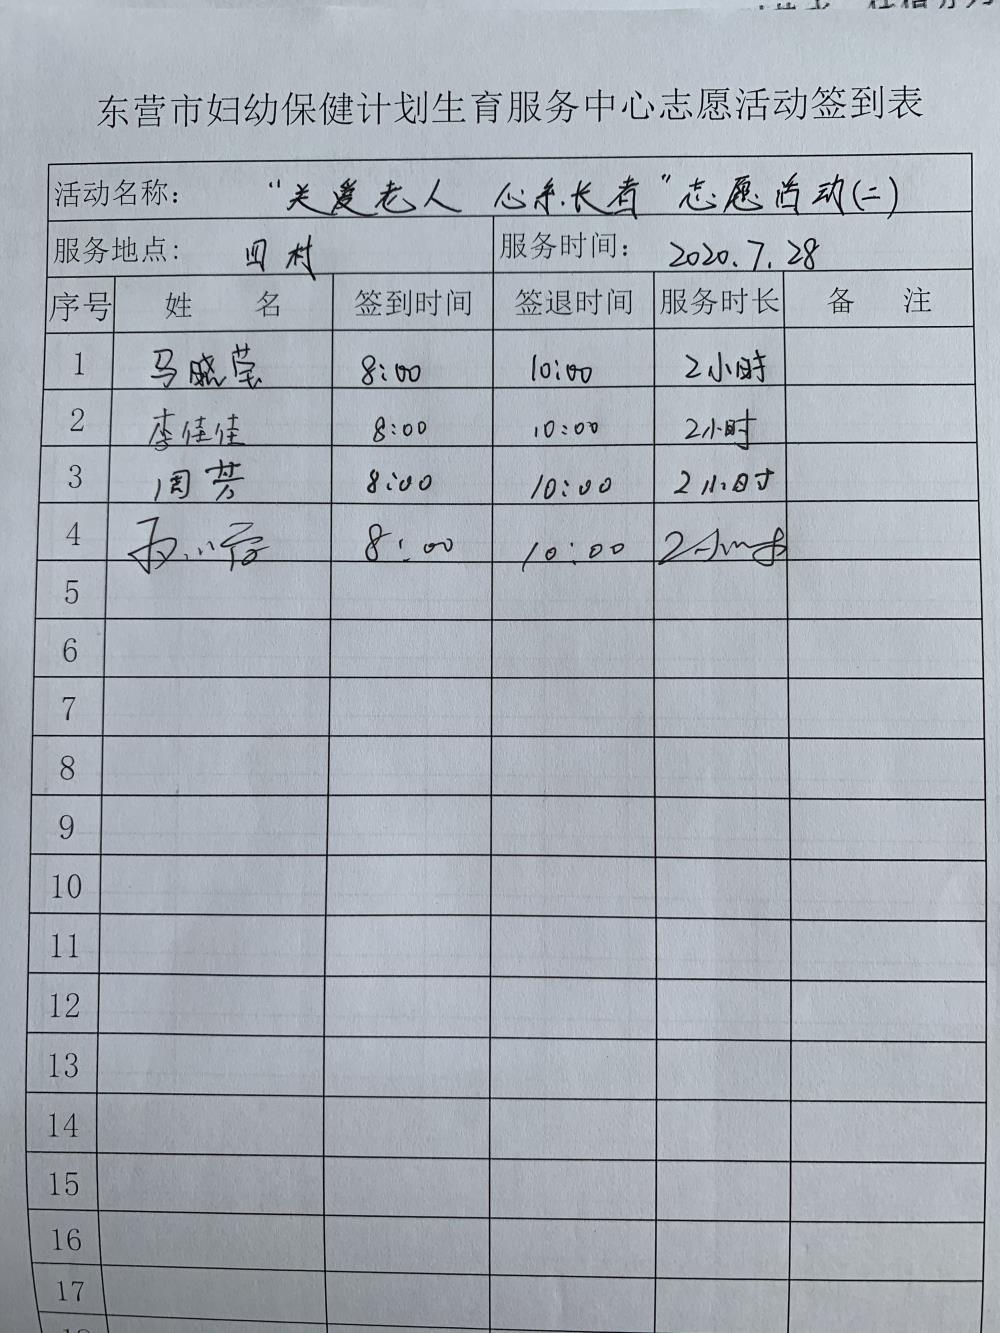 东营市妇幼保健计划生育服务中心志愿活动签到表
活动名称： “关爱老人 心系长者”志愿活动(二)
服务地点： 田村 服务时间： 2020.7.28
序号 姓 名 签到时间 签退时间 服务时长 备 注
1 马晓莹 8:00 10:00 2小时
2 李佳佳 8:00 10:00 2小时
3 周芳 8:00 10:00 2小时
4 8:00 10:00 2小时
5
6
7
8
9
10
11
12
13
14
15
16
17